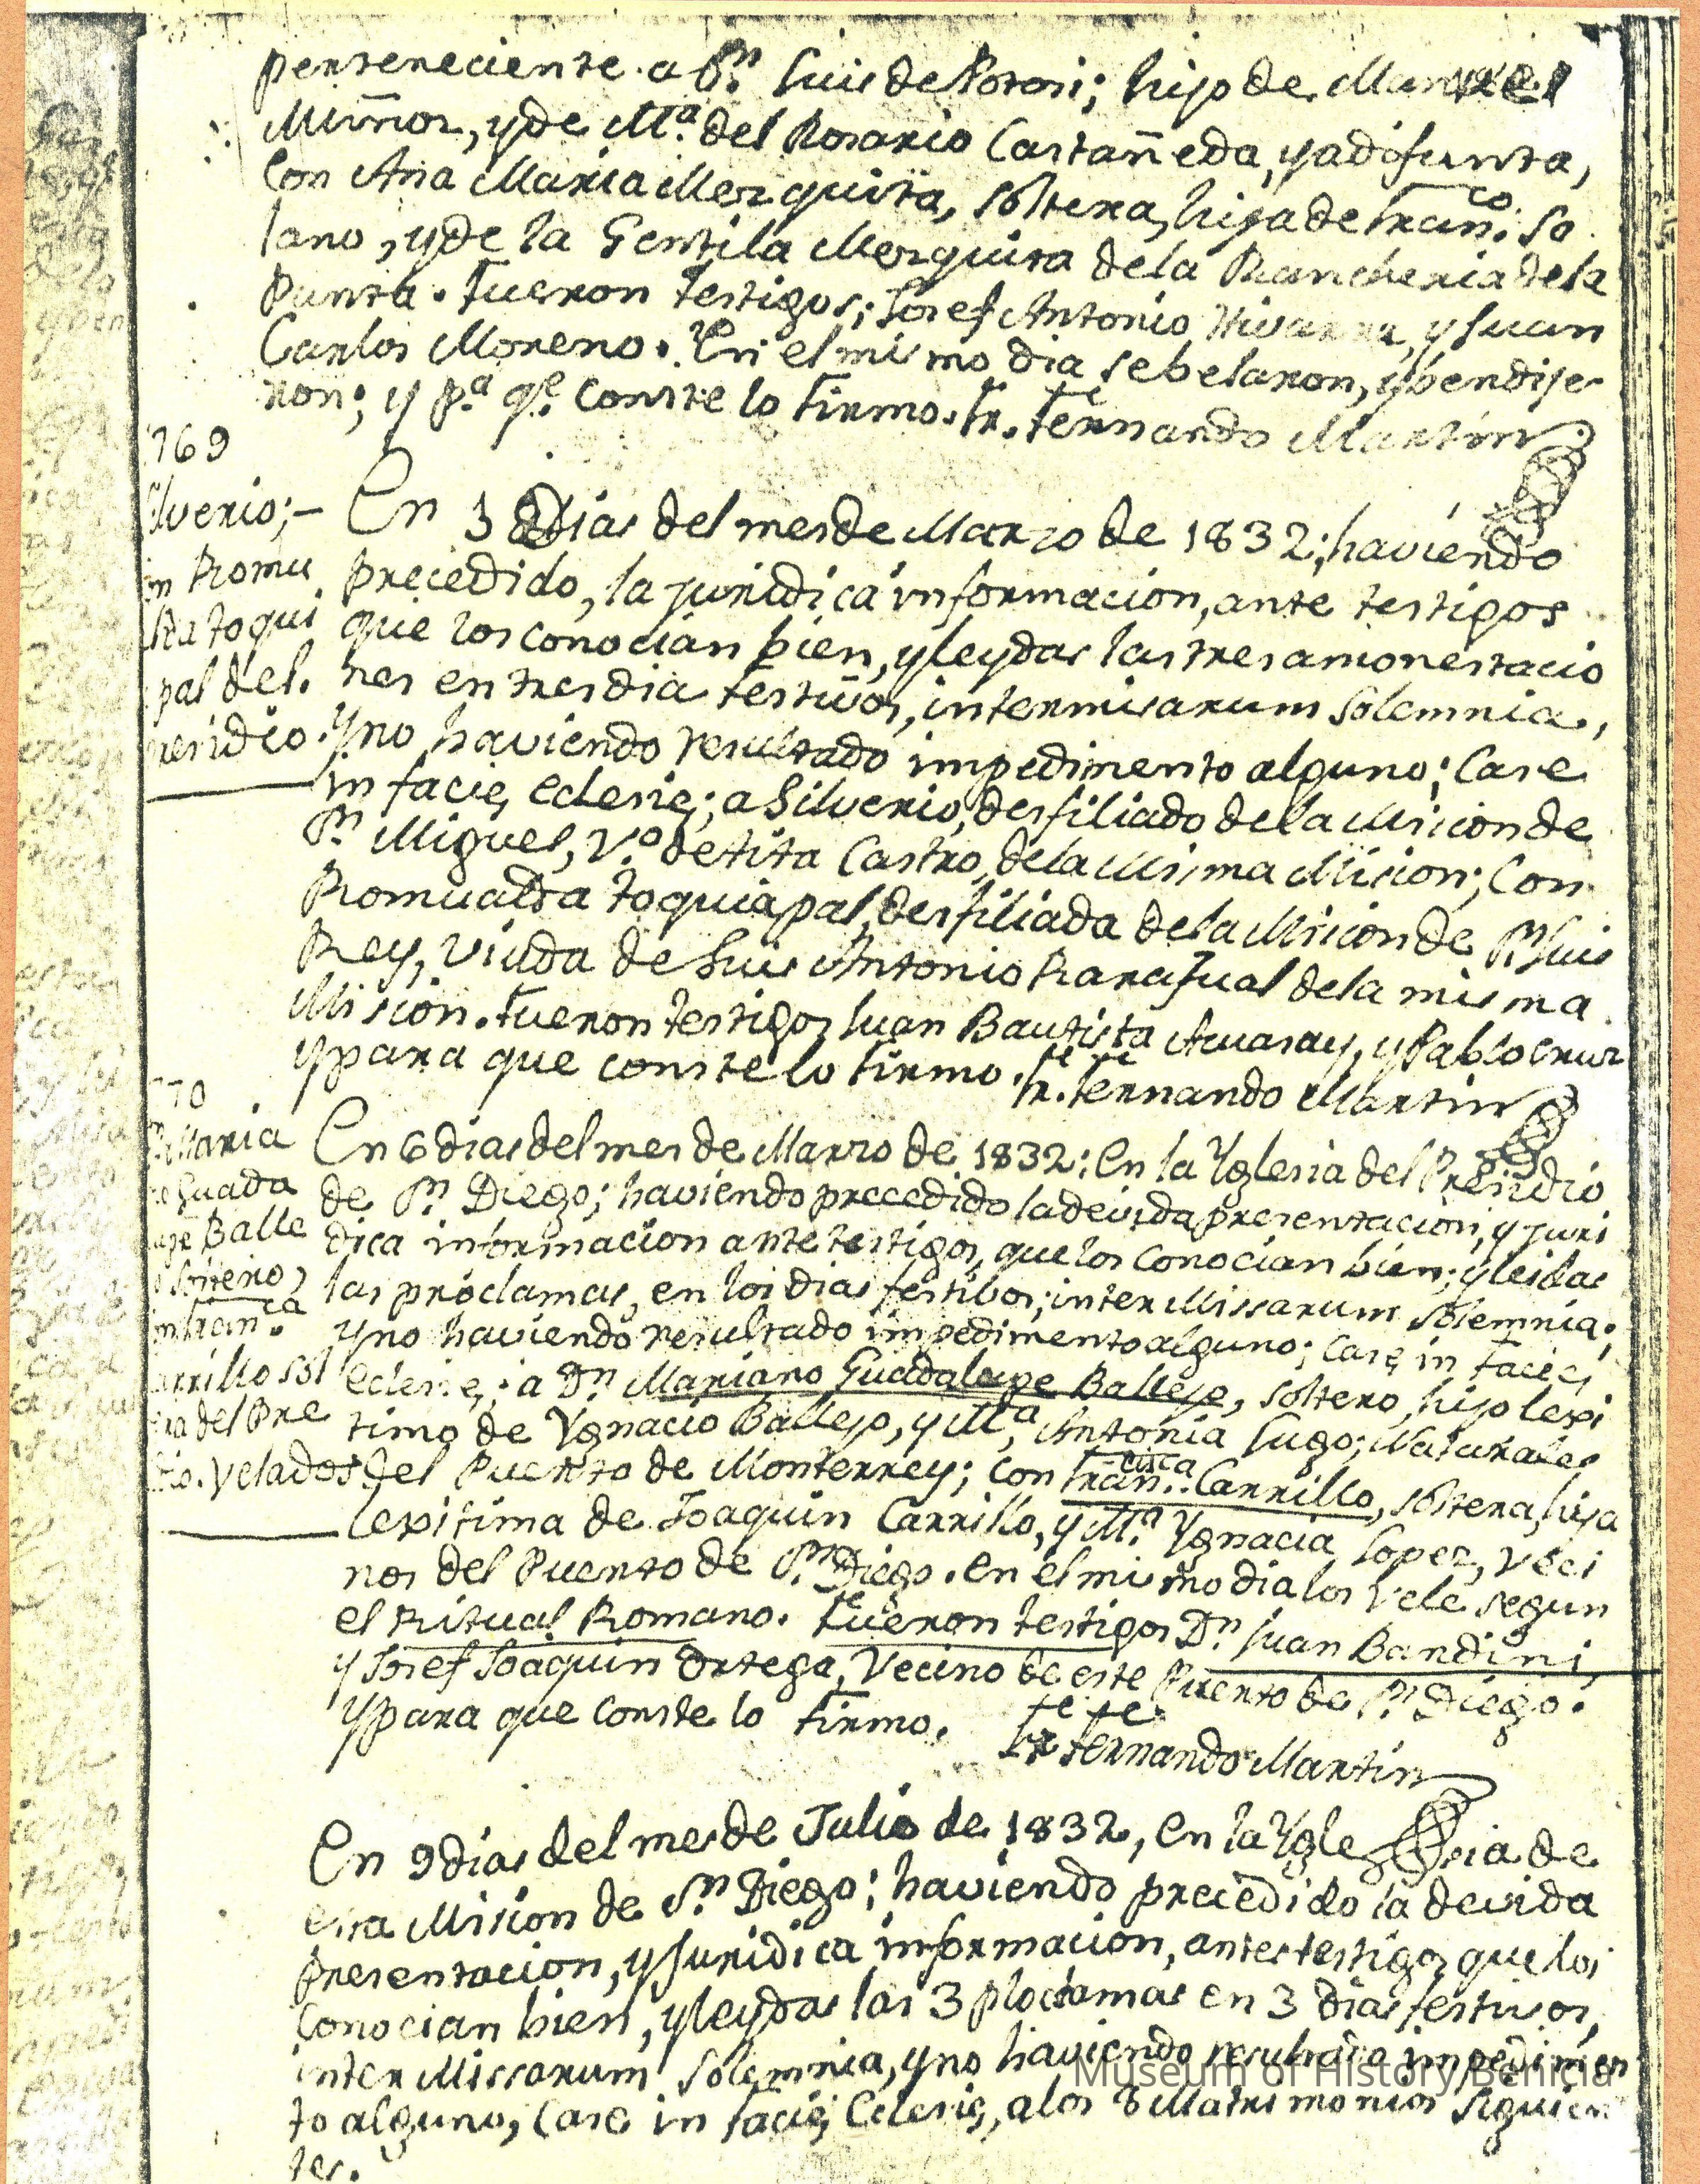 perteneciente a Sn. Luis de Potosi; hijo de Manuel
Muñoz, y de Ma. del Rosario Castañeda, ya difunta,
Con Ana Maria Mezquita, soltera, hija de Franco. So
lano, y de la Gentila Mezquita de la Rancheria de la
Punta. Fueron testigos; Josef Antonio, y Juan
Carlos Moreno. En el mismo dia se belaron, y bendije
ron; y pa. qe. conste lo firmo. Fr. Fernando Martin
769
ilverio;- En 3 Dias del mes de Marzo de 1832; haviendo
on Romu precedido, la juridica informacion, ante testigos
toqui que los conocian bien, y leydas las tres amonestacio
pal del. nes en tres dia festivos, intermisarum Solemnia,
residio. Y no haviendo resultado impedimento alguno; Case
in facie, eclesie; a Silverio, desfiliado de la Mision de
Sn. Miguel, Vo. de tita Castro, de la Misma Mision; Con
Romualda toquiapal, desfiliada de la Mision de Sn. Luis
Rey, viuda de Luis Antonio de la misma
Mision. Fueron testigos Juan Bautista, y Pablo Cruz
y para que conste lo firmo. Fr. Fernando Martin
70
Maria En 6 dias del mes de Marzo de 1832: En la Yglesia del Presidio
Guada de Sn. Diego; haviendo precedido la devida presentacion, y juri
upe Balle dica informacion ante testigos, que los conocian bien; y leidas
Soltero, las proclamas, en los dias festibos; inter Missarum Solemnia;
on Franca. y no haviendo resultado impedimento alguno; Case in Facie,
arrillo Sol eclesie,; a Dn. Mariano Guadalupe Ballejo, soltero, hijo lexi
ra del Pre timo de Ygnacio Ballejo, y Ma. Antonia Lugo; Naturales
dio. Velados del Puerto de Monterrey; con Franca. Carrillo, soltera, hija
lexitima de Joaquin Carrillo, y Ma. Ygnacia Lopez, veci
nos del Puerto de Sn. Diego. en el mismo dia los Vele segun
el Ritual Romano. Fueron testigos Dn. Juan Bandini,
y Josef Joaquin Ortega, Vecino de este Puerto de Sn. Diego.
Y para que conste lo firmo.
Fr. Fernando Martin
En 9 dias del mes de Julio de 1832, en la Yglesia de
esta Mision de Sn. Diego; haviendo precedido la devida
presentacion, y Juridica informacion, ante testigos que los
conocian bien, y leydas las 3 ploclamas en 3 dias festivos,
inter Missarum Solemnia, y no haviendo resultado impedimen
to alguno, Case in facie, Eclesie, a los 8 Matrimonios siguien
tes.
Museum of History Benicia